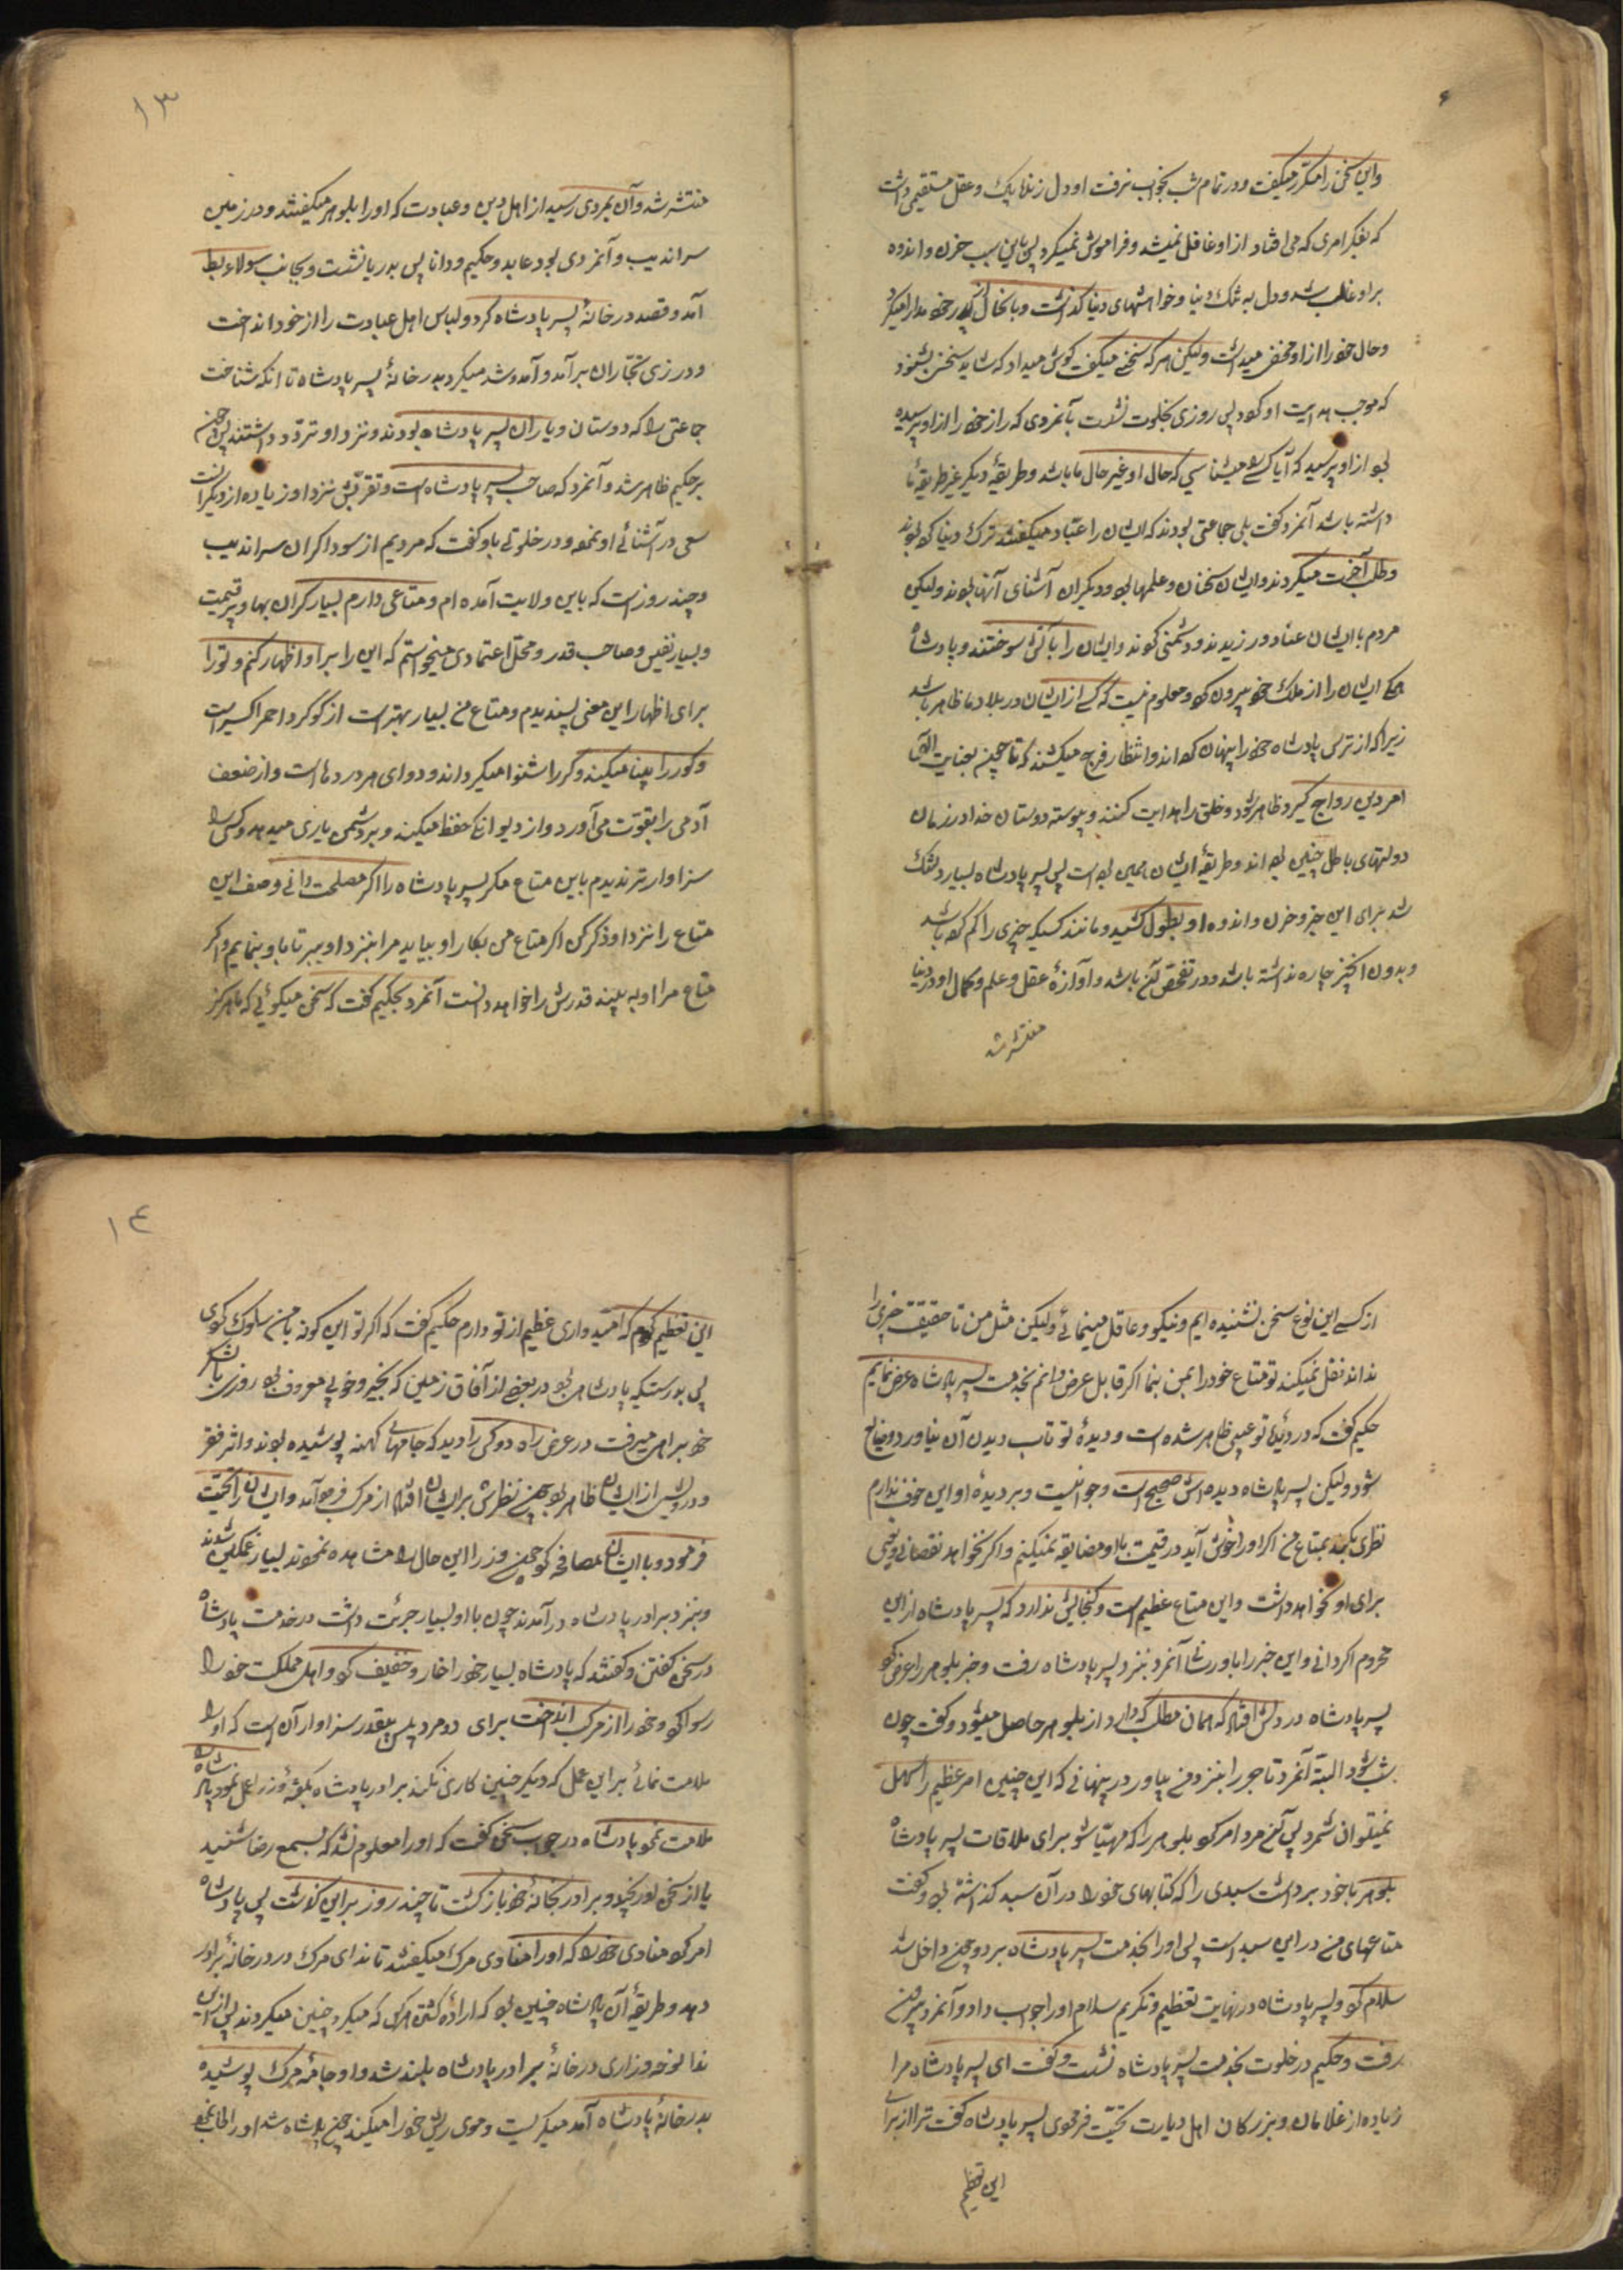 واین سخن را مکرر میگفت و در تمام شب بخواب نرفت او دل زنده پاک و عقل مستقیمی داشت
که بفکر امری که می افتاد از او غافل نمیشد و فراموش نمیکرد پس باین سبب حزن و اندوه
بر او غالب شد و دل به ترک دنیا و خواهشهای دنیا گذاشت و با اینحال از پدر خود مدارا میکرد
و حال خود را از او مخفی میداشت ولیکن هر که سخنی میگفت گوش میداد که شاید سخنی بشنود
که موجب هدایت او گردد پس روزی بخلوت نشست بآنمردی که راز خود را از او پرسیده
بود از او پرسید که آیا کسی میشناسی که حال او غیر حال ما باشد و طریقهٔ دیگر غیر طریقهٔ ما
داشته باشد آنمرد گفت بلی جماعتی بودند که ایشان را عبّاد میگفتند ترک دنیا کرده بودند
و طلب آخرت میکردند و ایشان سخنان و علمها بود و دیگران آشنای آنها نبودند ولیکن
مردم با ایشان عناد ورزیدند و دشمنی کردند و ایشان را بآتش سوختند و پادشاه
همگی ایشان را از ملک خود بیرون کرد و معلوم نیست که کسی از ایشان در بلاد ما ظاهر باشد
زیرا که از ترس پادشاه خود را پنهان کرده اند و انتظار فرج میکشند که تا چون بعنایت الهی
امر دین رواج گیرد ظاهر شوند و خلق را هدایت کنند و پیوسته دوستان خدا در زمان
دولتهای باطل چنین بوده اند و طریقهٔ ایشان همین بوده است پس پسر پادشاه بسیار دلتنگ
شد برای این خبر و حزن و اندوه او بطول کشید و مانند کسیکه چیزی را گم کرده باشد
و بدون آنچیز چاره نداشته باشد و در تفحص آن باشد و آوازهٔ عقل و علم و کمال او در دنیا
منتشر شد
۱۳
منتشر شد و آن بمردی رسید از اهل دین و عبادت که او را بلوهر میگفتند و در زمین
سراندیب و آنمردی بود عابد و حکیم و دانا پس بدریا نشست و بجانب سولابط
آمد و قصد در خانهٔ پسر پادشاه کرد و لباس اهل عبادت را از خود انداخت
و در زی تجّاران برآمد و آمد و شد میکرد بدر خانهٔ پسر پادشاه تا آنکه شناخت
جماعتی را که دوستان و یاران پسر پادشاه بودند و نزد او تردّد داشتند پس چون
بر حکیم ظاهر شد و آنمرد که صاحب پسر پادشاه است و تقربش نزد او زیاده از دیگرانست
سعی در آشنائی او نمود و در خلوتی باو گفت که مردیم از سوداگران سراندیب
و چند روز است که باین ولایت آمده ام و متاعی دارم بسیار گران بها و پر قیمت
و بسیار نفیس و صاحب قدر و محل اعتمادی میخواستم که این را بر او اظهار کنم و تو را
برای اظهار این معنی پسندیدم و متاع من بسیار بهتر است از گوگرد احمر اکسیر است
و کور را بینا میکند و کر را شنوا میگرداند و دوای هر دردها است و از ضعف
آدمی را بقوّت می آورد و از دیوانگی حفظ میکند و بر دشمن یاری میدهد و کسی را
سزاوارتر ندیدم باین متاع مگر پسر پادشاه را اگر مصلحت دانی وصف این
متاع را نزد او ذکر کن اگر متاع من بکار او بیاید مرا بنزد او ببر تا باو بنمایم و اگر
متاع مرا او به بیند قدرش را خواهد دانست آنمرد بحکیم گفت که سخن میگوئی که ما هرگز
از کسی این نوع سخن نشنیده ایم و نیکو و عاقل مینمائی ولیکن مثل من تا حقیقت چیزی را
نداند نقل نمیکند تو متاع خود را بمن بنما اگر قابل عرض دانم بخدمت پسر پادشاه عرض نمایم
حکیم گفت که در دیدهٔ تو عیبی ظاهر شده است و دیدهٔ تو تاب دیدن آن نیاورد و ضایع
شود ولیکن پسر پادشاه دیده اش صحیح است و جوانست و بر دیدهٔ او این خوف ندارم
نظری بکند بمتاع من اگر او را خوش آید در قیمت با او مضایقه نمیکنم و اگر نخواهد نقصانی و تعبی
برای او نخواهد داشت و این متاع عظیم است و گنجایش ندارد که پسر پادشاه از این
محروم گردانی و این خبر را باو رسان آنمرد بنزد پسر پادشاه رفت و خبر بلوهر را عرض کرد
پسر پادشاه در دلش افتاد که همان مطلب که دارد از بلوهر حاصل میشود و گفت چون
شب شود البتة آنمرد تاجر را بنزد من بیاور در پنهانی که این چنین امر عظیم را سهل
نمیتوان شمرد پس آنمرد امر کرد بلوهر را که مهیّا شو برای ملاقات پسر پادشاه
بلوهر با خود برداشت سبدی را که کتابهای خود را در آن سبد گذاشته بود و گفت
متاعهای من در این سبد است پس او را بخدمت پسر پادشاه برد و چون داخل شد
سلام کرد و پسر پادشاه در نهایت تعظیم و تکریم سلام او را جواب داد و آنمرد بیرون
رفت و حکیم در خلوت بخدمت پسر پادشاه نشست و گفت ای پسر پادشاه مرا
زیاده از غلامان و بزرگان اهل دیارت تحیّت فرمودی پسر پادشاه گفت ترا از برای
این تعظیم
۱٤
این تعظیم کردم که امیدواری عظیم از تو دارم حکیم گفت که اگر تو این گونه با من سلوک کردی
پس بدرستیکه پادشاهی بود در بعضی از آفاق زمین که بخیر و خوبی معروف بود روزی با لشکر
خود براهی میرفت در عرض راه دو کس را دید که جامهای کهنه پوشیده بودند و اثر فقر
و درویشی از ایشان ظاهر بود چون نظرش بر ایشان افتاد از مرکب فرود آمد و ایشان را تحیّت
فرمود و با ایشان مصافحه کرد چون وزرا این حال را مشاهده نمودند بسیار غمگین شدند
و بنزد برادر پادشاه در آمدند چون با او بسیار جرئت داشت در خدمت پادشاه
در سخن گفتن و گفتند که پادشاه بسیار خود را خوار و خفیف کرد و اهل مملکت خود را
رسوا کرد و خود را از مرکب انداخت برای دو مرد پس بیقدر سزاوار آن است که او را
ملامت نمائی بر این عمل که دیگر چنین کاری نکند برادر پادشاه بگفتهٔ وزرا عمل نمود پادشاه را
ملامت نمود پادشاه در جواب سخنی گفت که او را معلوم نشد که بسمع رضا شنید
یا از سخن او رنجید و برادر بخانهٔ خود بازگشت تا چند روز بر این گذشت پس پادشاه
امر کرد منادی خود را که او را منادی مرگ میگفتند تا ندای مرگ در در خانهٔ برادر
دهد و طریقهٔ آن پادشاه چنین بود که ارادهٔ کشتن هر کس که میکرد چنین میکردند پس از این
ندا نوحه و زاری در خانهٔ برادر پادشاه بلند شد و او جامهٔ مرگ پوشیده
بدر خانهٔ پادشاه آمد میگریست و موی ریش خود را میکند چون پادشاه شد او را طلب نمود